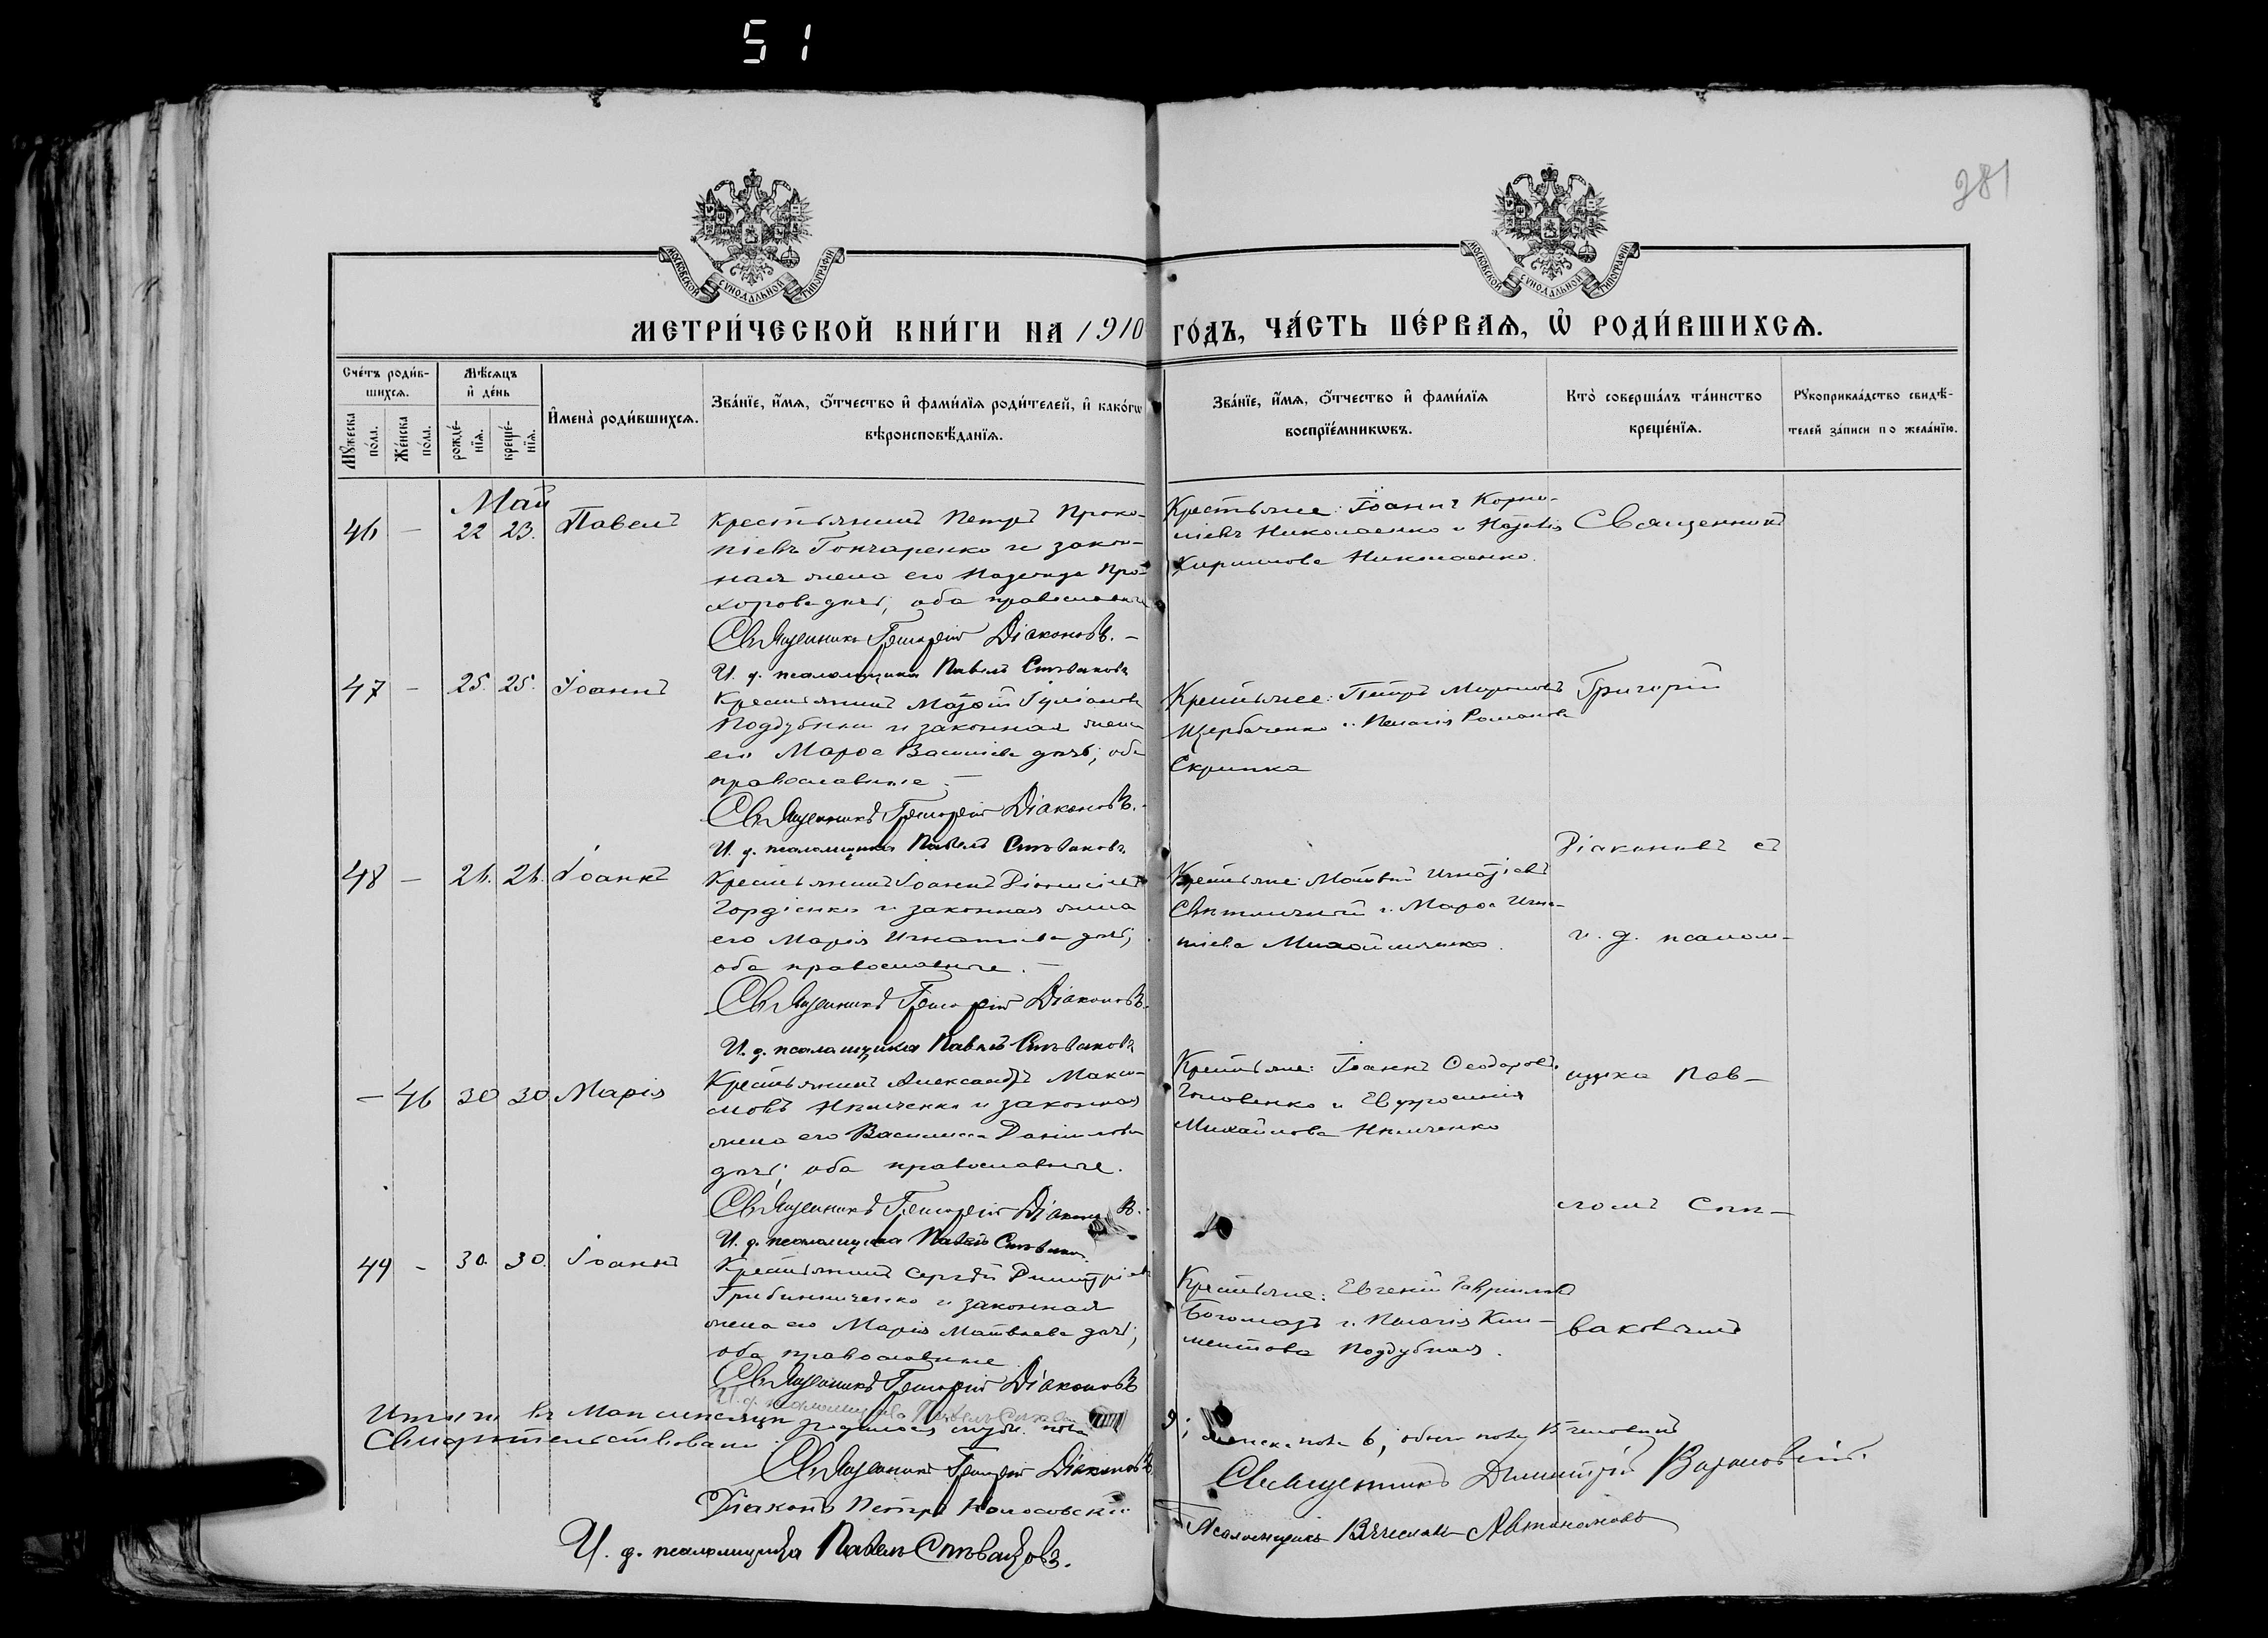 51
281
МОСКОВСКОЙ СѴНОДАЛЬНОЙ ТИПОГРАФІИ
МОСКОВСКОЙ СѴНОДАЛЬНОЙ ТИПОГРАФІИ
МЕТРИ́ЧЕСКОЙ КНИ́ГИ НА 1910 ГО́ДЪ, ЧА́СТЬ ПЕ́РВАѦ, Ѡ҆ РОДИ́ВШИХСѦ.
Сче́тъ роди́в-
шихсѧ.
Мꙋ́жеска по́ла.
Же́нска по́ла.
Мѣ́сѧцъ
и҆ де́нь
рожде́-
нїѧ.
креще́-
нїѧ.
И҆мена̀ роди́вшихсѧ.
Зва́нїе, и҆́мѧ, ѻ҆́тчество и҆ фами́лїѧ роди́телей, и҆ како́гѡ
вѣроисповѣ́данїѧ.
Зва́нїе, и҆́мѧ, ѻ҆́тчество и҆ фами́лїѧ
воспрїе́мникѡвъ.
Кто̀ соверша́лъ та́инство
креще́нїѧ.
Рꙋкоприкла́дство свидѣ́-
телей за́писи по жела́нїю.
Май
46 — 22 23. Павелъ
Крестьянинъ Петръ Проко-
піевъ Гончаренко и закон-
ная жена его Надежда Про-
хорова дочь, оба православные
Священникъ Григорій Діаконовъ. —
И. д. псаломщика Павелъ Спиваковъ
Крестьяне: Іоаннъ Корни-
ліевъ Николаенко и
Кириллова Николаенко.
Священникъ
47 — 25. 25. Іоаннъ
Крестьянинъ Маѳѳій Іуліановъ
Поддубный и законная жена
его Марѳа Васильева дочь, оба
православные. —
Священникъ Григорій Діаконовъ.
И. д. псаломщика Павелъ Спиваковъ
Крестьяне: Петръ Мироновъ
Щербаченко и Пелагія Романова
Скрипка
Григорій
48 — 26. 26. Іоаннъ
Крестьянинъ Іоаннъ Діонисіевъ
Гордіенко и законная жена
его Марія Игнатіева дочь,
оба православные. —
Священникъ Григорій Діаконовъ.
И. д. псаломщика Павелъ Спиваковъ
Крестьяне: Матвій Игнатіевъ
Свитличный и Марѳа Игна-
тіева Михайличенко.
Діаконовъ съ
и. д. псалом-
— 46 30 30 Марія
Крестьянинъ Александръ Макси-
мовъ Ильченко и законная
жена его Василисса Даніилова
дочь, оба православные.
Священникъ Григорій Діаконовъ.
И. д. псаломщика Павелъ Спиваковъ
Крестьяне: Іоаннъ Ѳеодоровъ
Головенко и Евфросинія
Михайлова Ильченко
щика Пав-
ломъ Спи-
49 — 30. 30. Іоаннъ
Крестьянинъ Сергѣй Димитріевъ
Грибинниченко и законная
жена его Марія Матвѣева дочь,
оба православные
Священникъ Григорій Діаконовъ
И. д. псаломщика Павелъ Спиваковъ
Крестьяне: Евгеній Гавріиловъ
Богомазъ и Пелагія Кли-
ментова Поддубная.
ваковымъ
Итого въ Маѣ мѣсяцѣ родилось муж. пола 9; женска пола 6, обоего пола 15 человѣкъ
Свидѣтельствовали
Священникъ Григорій Діаконовъ
Діаконъ Петръ Колосовскій
И. д. псаломщика Павелъ Спиваковъ.
Священникъ Димитрій
Псаломщикъ Вячеславъ Автономовъ